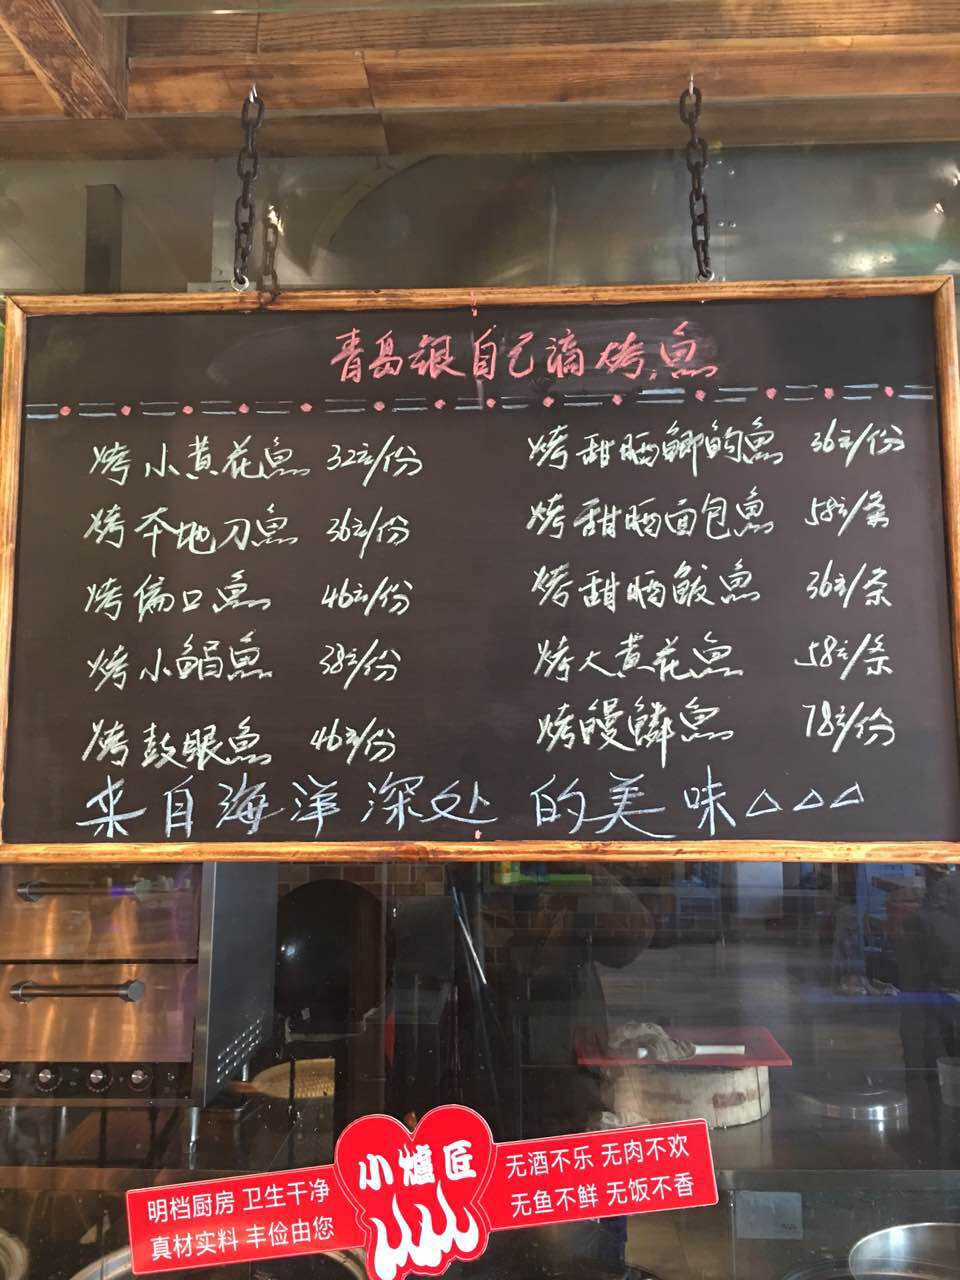 青岛银自己滴烤鱼
烤小黄花魚 32元/份
烤本地刀魚 36元/份
烤偏口魚 46元/份
烤小鲳魚 38元/份
烤鼓眼魚 46元/份
烤甜晒鲫鱼的魚 36元/份
烤甜晒面包魚 58元/条
烤甜晒鲅魚 36元/条
烤大黄花魚 58元/条
烤鳗鳞魚 78元/份
来自海洋深处的美味△△△
小爐匠
明档厨房 卫生干净
真材实料 丰俭由您
无酒不乐 无肉不欢
无鱼不鲜 无饭不香